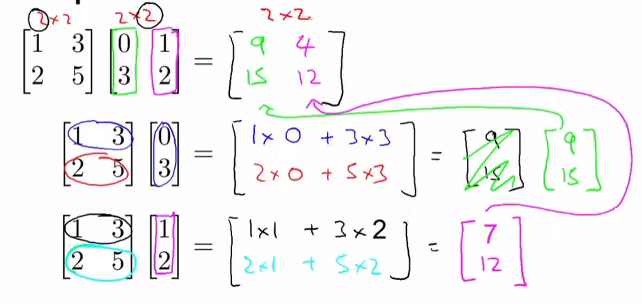 2×2 2×2 2×2
[1 3; 2 5] [0 1; 3 2] = [9 4; 15 12]
[1 3; 2 5] [0; 3] = [1×0 + 3×3; 2×0 + 5×3] = [9; 15] [9; 15]
[1 3; 2 5] [1; 2] = [1×1 + 3×2; 2×1 + 5×2] = [7; 12]